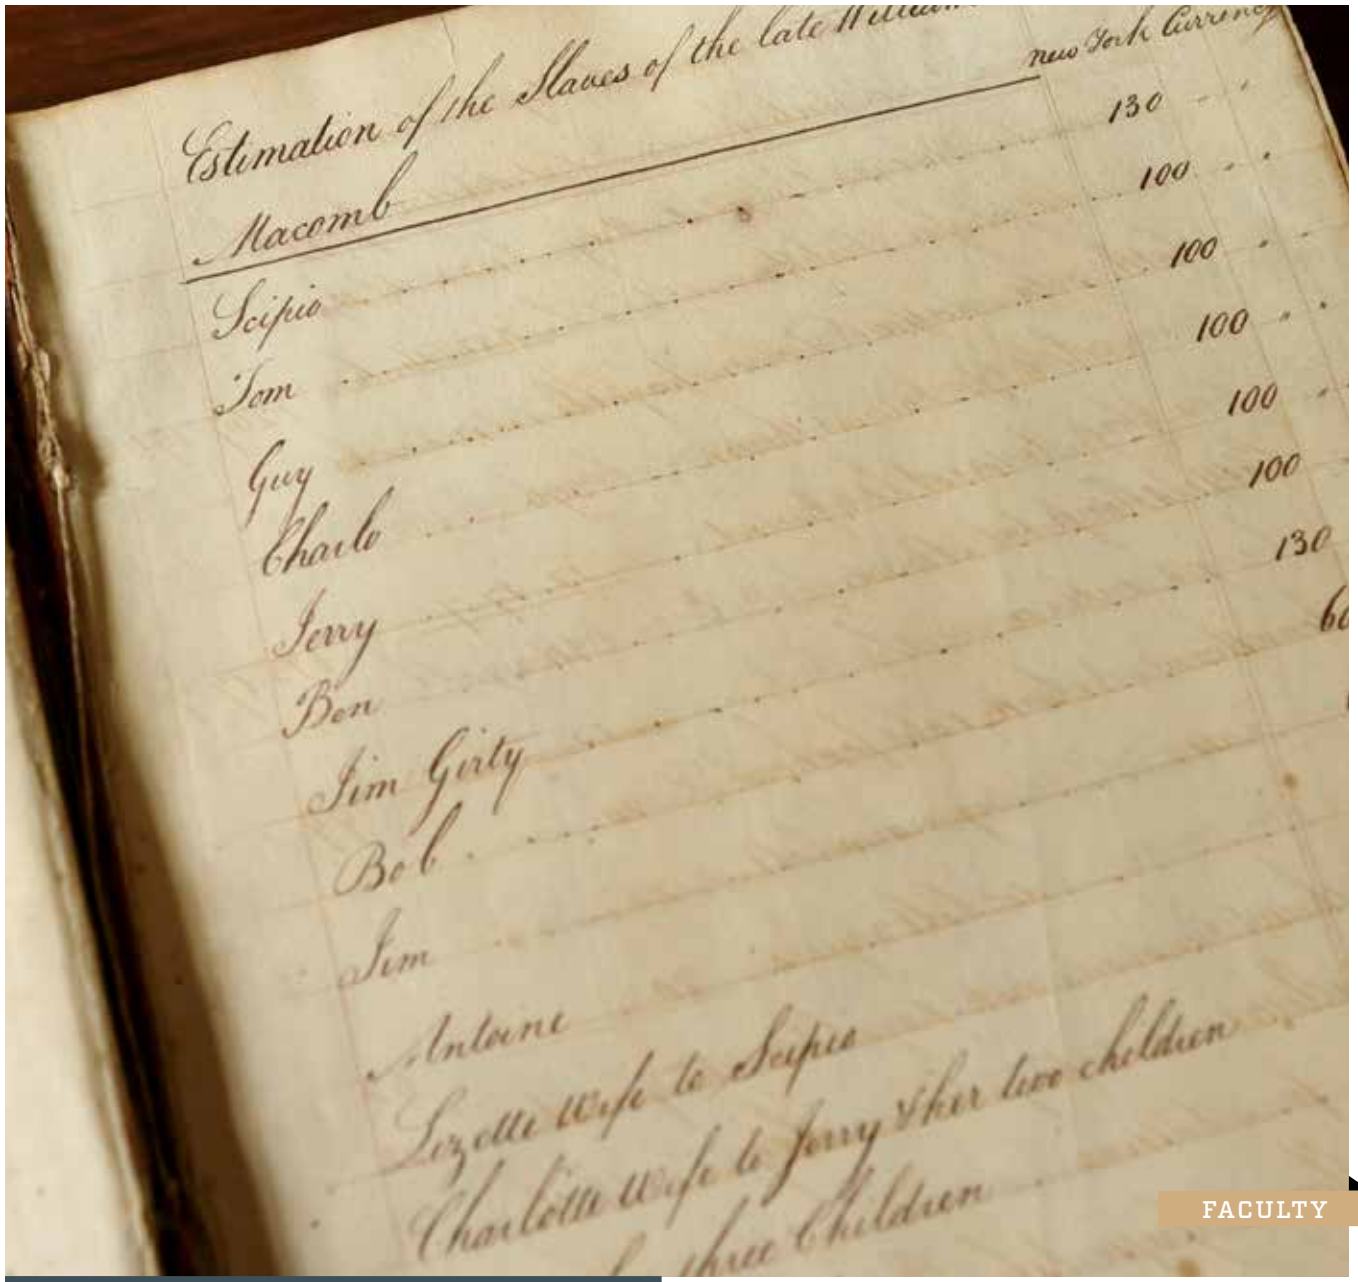 Estimation of the Slaves of the late William
Macomb
new York Currency
Scipio 130
Tom 100
Guy 100
Charlo 100
Jerry 100
Ben 100
Jim Girty 130
Bob 60
Jim
Antoine
Lizette Wife to Scipio
Charlotte Wife to Jerry & her two children
three Children
FACULTY